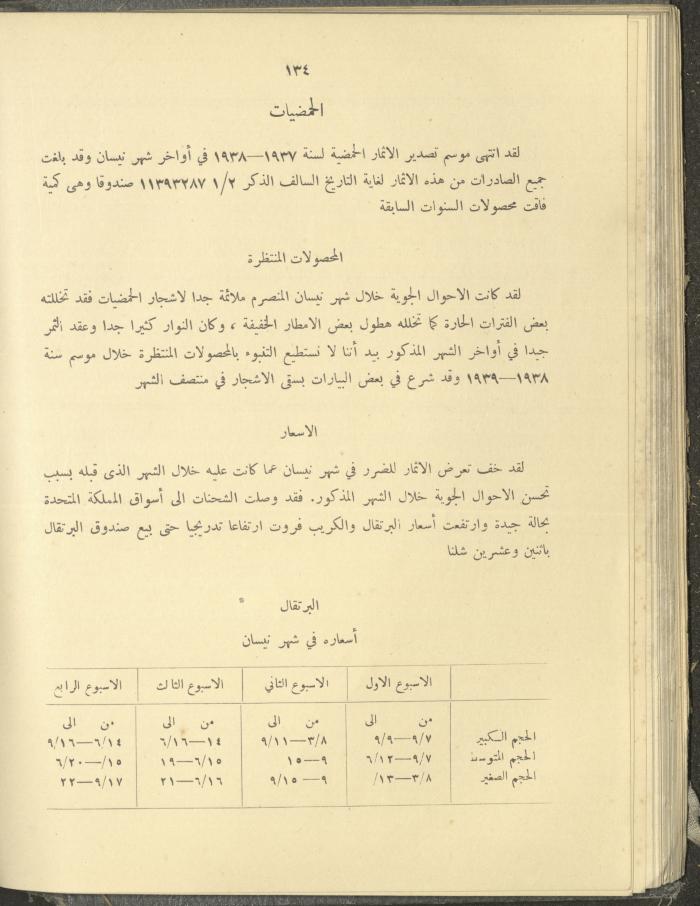 ١٣٤
الحمضيات
لقد انتهى موسم تصدير الاثمار الحمضية لسنة ١٩٣٧—١٩٣٨ في أواخر شهر نيسان وقد بلغت
جميع الصادرات من هذه الاثمار لغاية التاريخ السالف الذكر ١/٢ ١١٣٩٣٢٨٧ صندوقا وهى كمية
فاقت محصولات السنوات السابقة
المحصولات المنتظرة
لقد كانت الاحوال الجوية خلال شهر نيسان المنصرم ملائمة جدا لاشجار الحمضيات فقد تخللته
بعض الفترات الحارة كما تخلله هطول بعض الامطار الخفيفة ، وكان النوار كثيرا جدا وعقد الثمر
جيدا في أواخر الشهر المذكور بيد أننا لا نستطيع التنبوء بالمحصولات المنتظرة خلال موسم سنة
١٩٣٨—١٩٣٩ وقد شرع في بعض البيارات بسقى الاشجار في منتصف الشهر
الاسعار
لقد خف تعرض الاثمار للضرر في شهر نيسان عما كانت عليه خلال الشهر الذى قبله بسبب
تحسن الاحوال الجوية خلال الشهر المذكور. فقد وصلت الشحنات الى أسواق المملكة المتحدة
بحالة جيدة وارتفعت أسعار البرتقال والكريب فروت ارتفاعا تدريجيا حتى بيع صندوق البرتقال
باثنين وعشرين شلنا
البرتقال *
أسعاره في شهر نيسان
الاسبوع الاول الاسبوع الثاني الاسبوع الثالث الاسبوع الرابع
من الى من الى من الى من الى
الحجم الكبير ٩/٧—٩/٩ ٣/٨—٩/١١ ١٤—٦/١٦ ٦/١٤—٩/١٦
الحجم المتوسط ٩/٧—٦/١٢ ٩—١٥ ٦/١٥—١٩ ١٥/—٦/٢٠
الحجم الصغير ٣/٨—١٣/ ٩—٩/١٥ ٦/١٦—٢١ ٩/١٧—٢٢